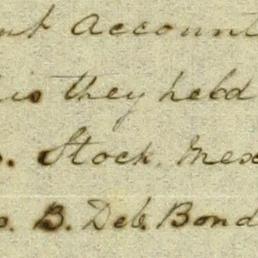 nt Account
is they held
. Stock. Mex
. B. Deb. Bond